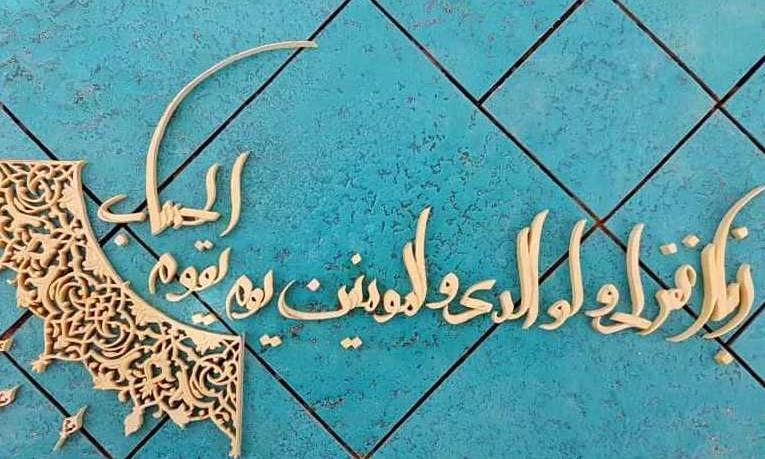 ربنا اغفر لی و لوالدی و للمومنین یوم یقوم
الحساب